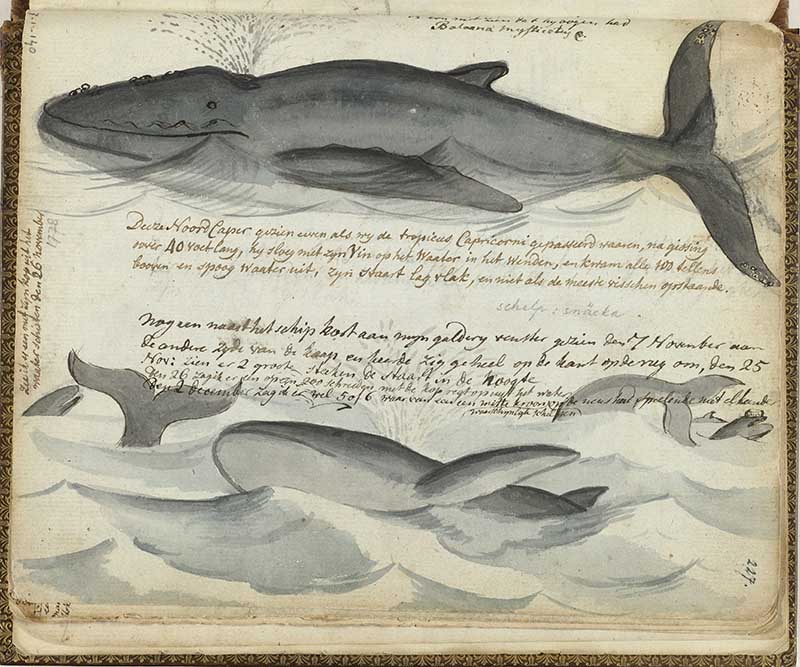 oogen had
Balaena mysticetus
Deeze Noord Caper gezien even als wy de tropicus Capricorni gepasseerd waaren, na gissing
over 40 voet lang, hy sloeg met zyn Vin op het Waater in het wenden, en kwam alle 100 tellens
booven en spoog Waater uit, zyn staart lag vlak, en niet als de meeste visschen opstaande.
schelp: snäcka
nog een naast het schip kost aan myn galdery venster gezien den 7 November aan
de andere zyde van de kaap, en keerde zig geheel op de kant op de rug om, den 25
Nov: zien er 2 groote staken de staart in de hoogte
den 26 zag ik er een op een 200 schreeden met de kop regt op uyt het water
den 2 december zag ik er wel 5 of 6 waar van een een witte kroon op de neus had speelende met elkande
waarschynlyk schulpen
zag ik er een met zyn kop uit het
water schieten den 26 november
1778
227.